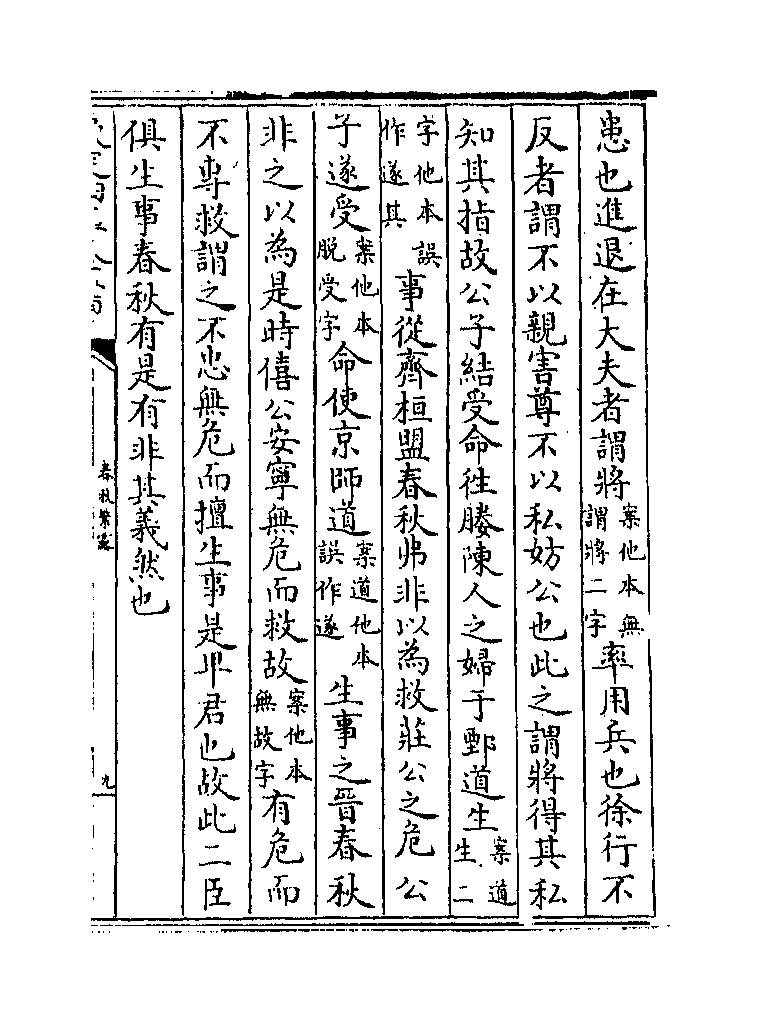 患也進退在大夫者謂將案他本無謂將二字率用兵也徐行不
反者謂不以親害尊不以私妨公也此之謂將得其私
知其指故公子結受命徃媵陳人之婦于鄄道生案道生二
字他本誤作遂其事從齊桓盟春秋弗非以為救莊公之危公
子遂受案他本脱受字命使京師道案道他本誤作遂生事之晉春秋
非之以為是時僖公安寧無危而救故案他本無故字有危而
不專救謂之不忠無危而擅生事是卑君也故此二臣
俱生事春秋有是有非其義然也
春秋繁露
九